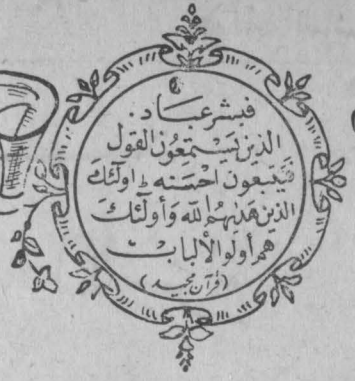 فبشر عباد.
الذين يستمعون القول
فيتبعون احسنه ط اولٓئك
الذين هدٰىهم الله وأولٓئك
هم أولو الألباب
(قرآن مجيد)